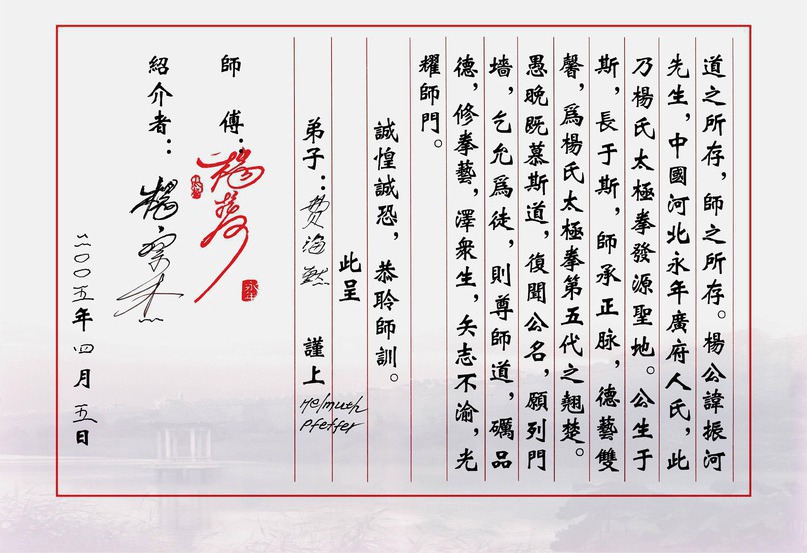 道之所存，師之所存。楊公諱振河
先生，中國河北永年廣府人氏，此
乃楊氏太極拳發源聖地。公生于
斯，長于斯，師承正脉，德藝雙
馨，爲楊氏太極拳第五代之翹楚。
愚晚既慕斯道，復聞公名，願列門
墻，乞允爲徒，則尊師道，礪品
德，修拳藝，澤衆生，矢志不渝，光
耀師門。
誠惶誠恐，恭聆師訓。
此呈
弟子： 謹上 Helmuth
Pfeffer
師傅：楊振河
紹介者：楊宗杰
二〇〇五年四月五日